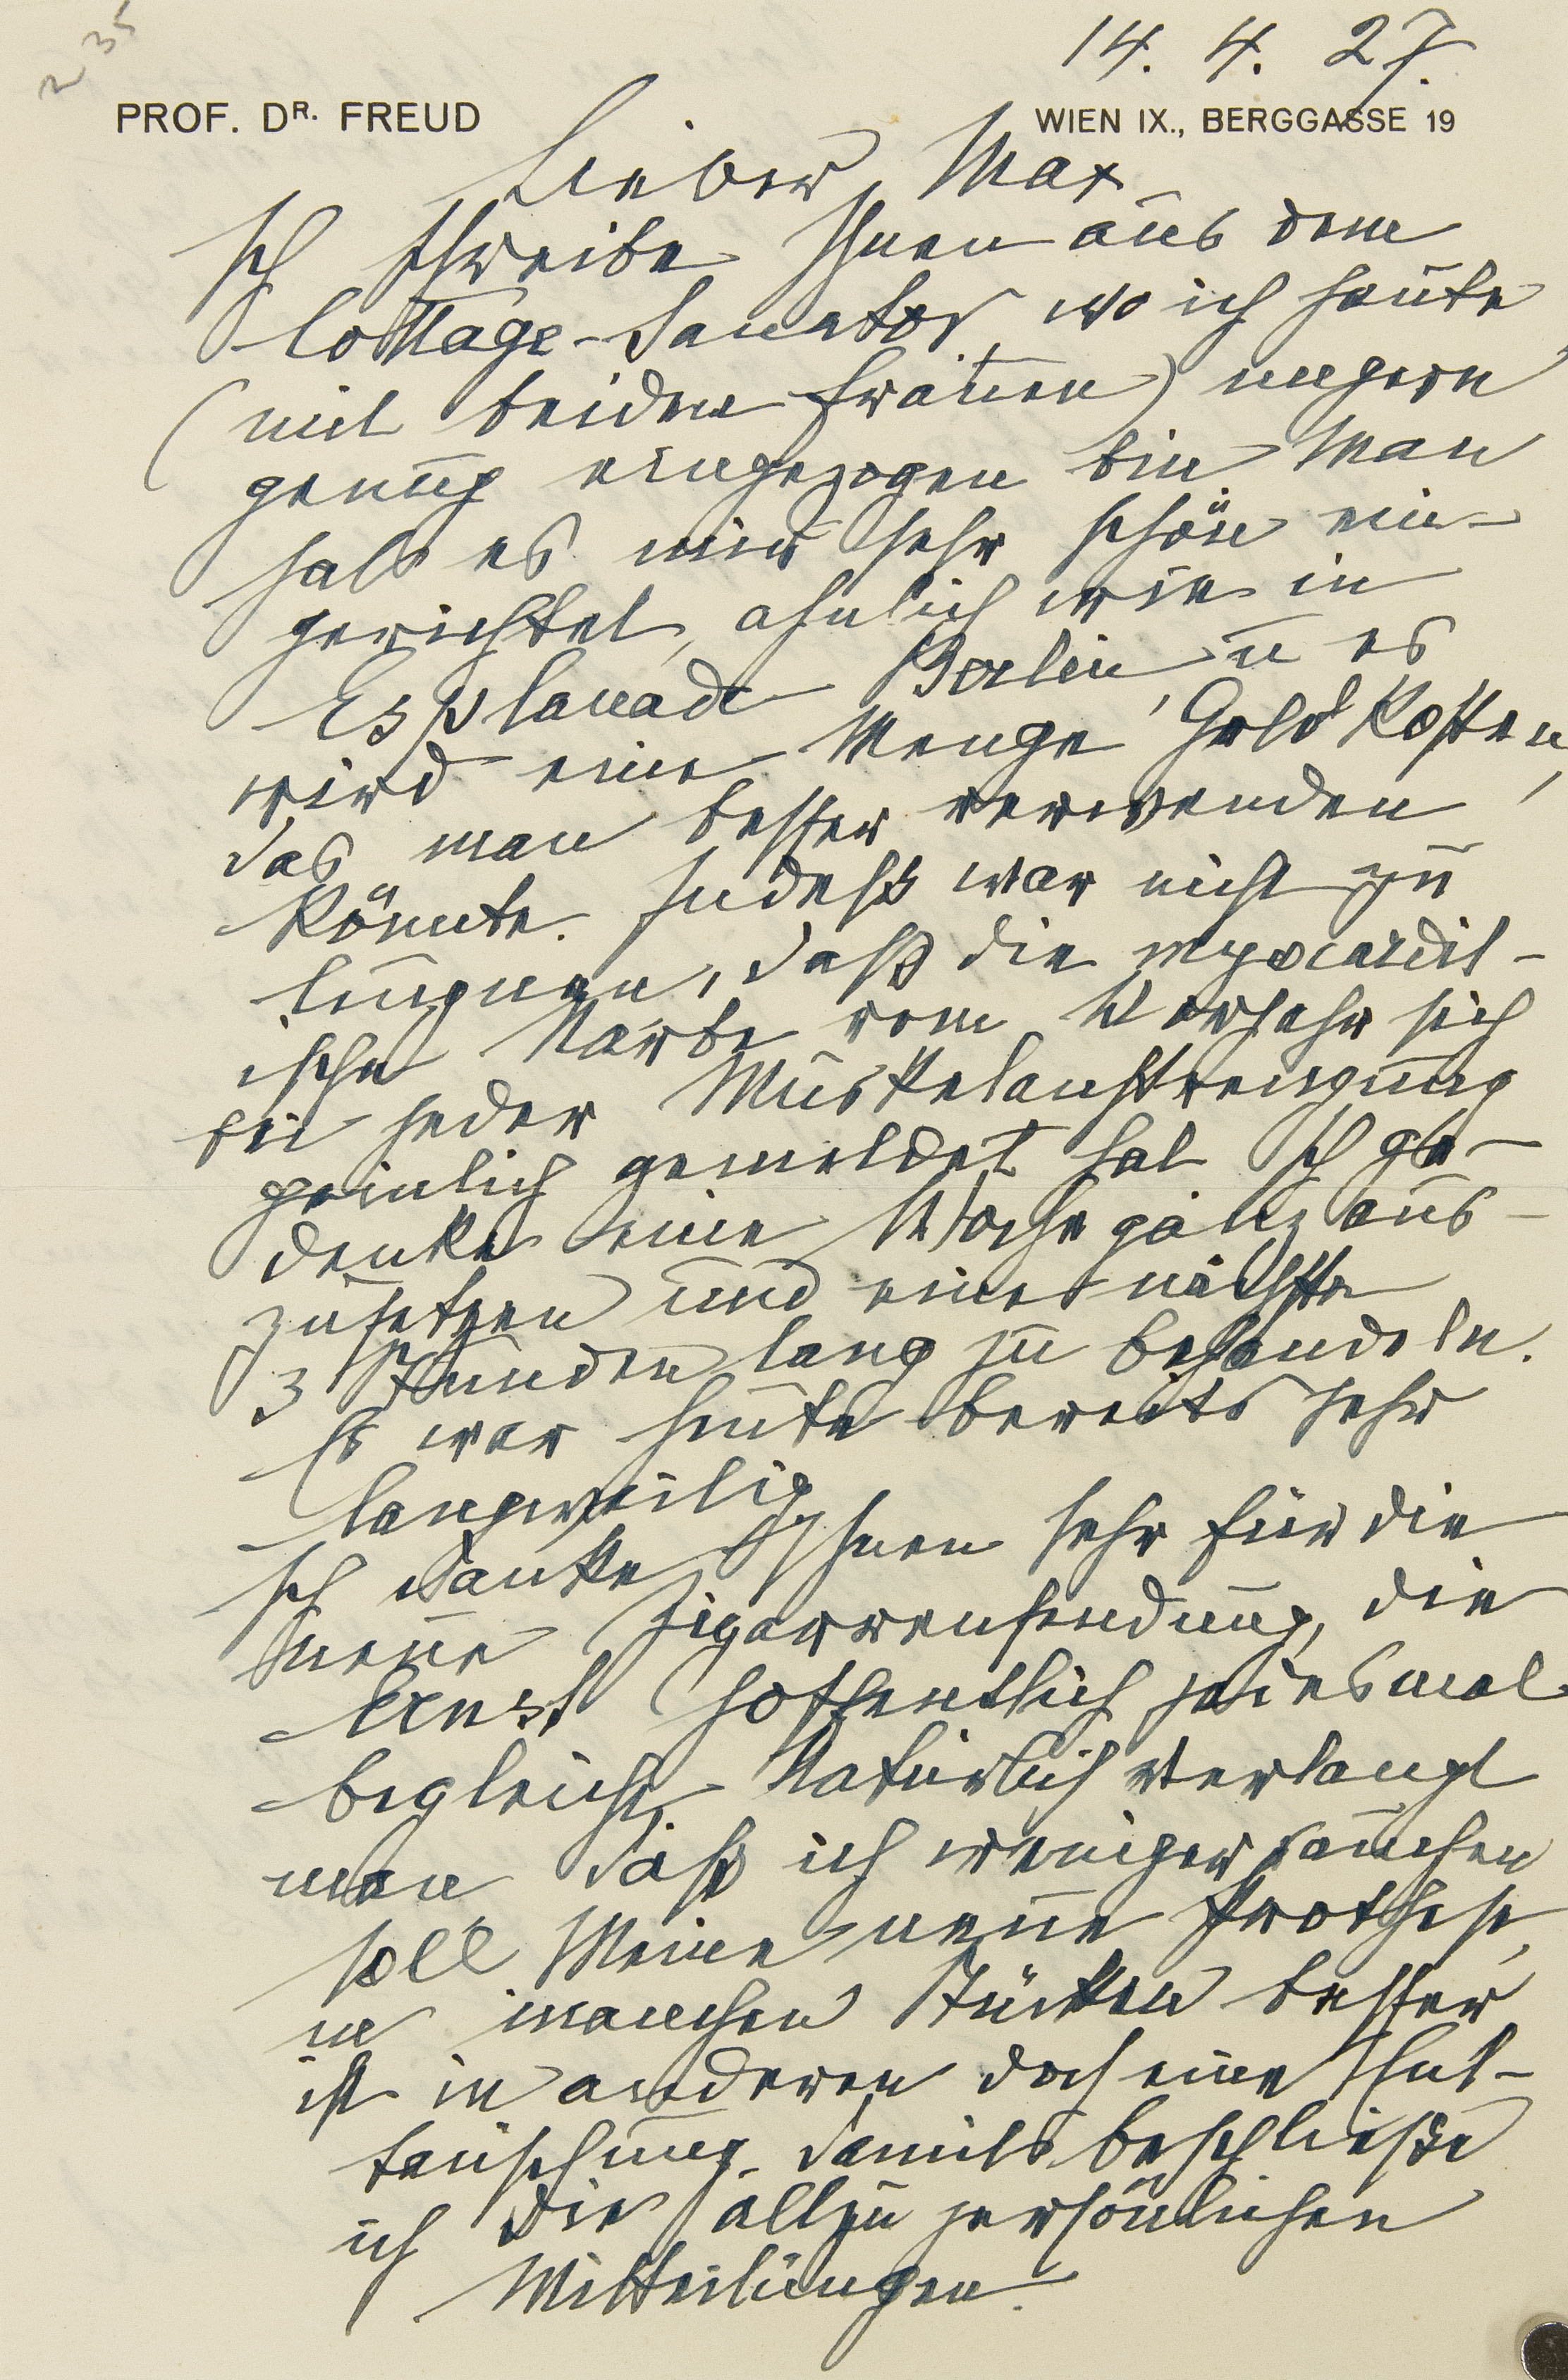 235
14. 4. 27.
PROF. DR. FREUD
WIEN IX., BERGGASSE 19
Lieber Max
Ich schreibe Ihnen aus dem
Cottage-Sanator, wo ich heute
(mit beiden Frauen) ungern
genug eingezogen bin. Man
hat es mir sehr schön ein-
gerichtet, ähnlich wie in
Esplanade Berlin u es
wird eine Menge Geld kosten,
das man besser verwenden
könnte. Indeß war nicht zu
leugnen, daß die myocardit-
ische Narbe vom Vorjahr sich
bei jeder Muskelanstrengung
peinlich gemeldet hat. Ich ge-
denke eine Woche ganz aus-
zusetzen und eine nächste
3 Stunden lang zu behandeln.
Es war heute bereits sehr
langweilig.
Ich danke Ihnen sehr für die
neue Zigarrensendung, die
Ernst hoffentlich jedesmal
begleicht. Natürlich verlangt
man, daß ich weniger rauchen
soll. Meine neue Prothese,
in manchen Stücken besser
ist in anderen doch eine Ent-
täuschung. Damit beschließe
ich die allzu persönlichen
Mitteilungen.